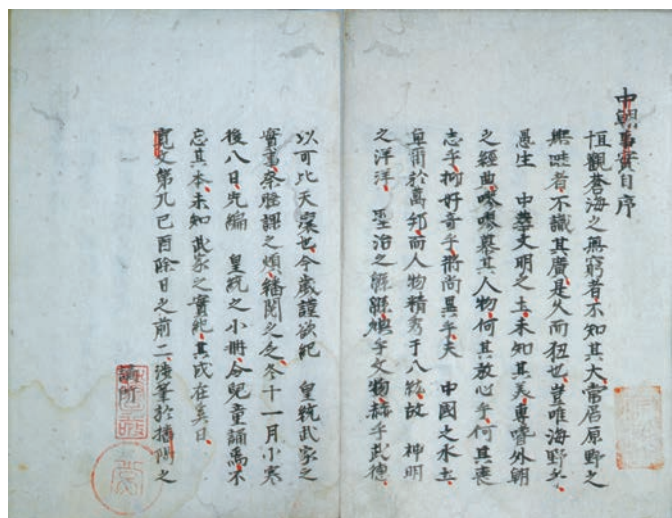 中朝事實自序
恒觀蒼海之無窮者不知其大常居原野之
無畦者不識其廣是久而狃也豈唯海野乎
愚生　中華文明之土未知其美專嗜外朝
之經典嘐嘐慕其人物何其放心乎何其喪
志乎抑好奇乎將尚異乎夫　中國之水土
卓爾於萬邦而人物精秀于八紘故　神明
之洋洋　聖治之緜緜煥乎文物赫乎武德
以可比天壤也今歲謹欲紀　皇統武家之
實事奈睡課之煩繙閱之乏冬十一月小寒
後八日先編　皇統之小冊令兒童誦焉不
忘其本未知武家之實紀其成在奚日
寛文第九己酉除日之前二涶筆於播陽之
謫所